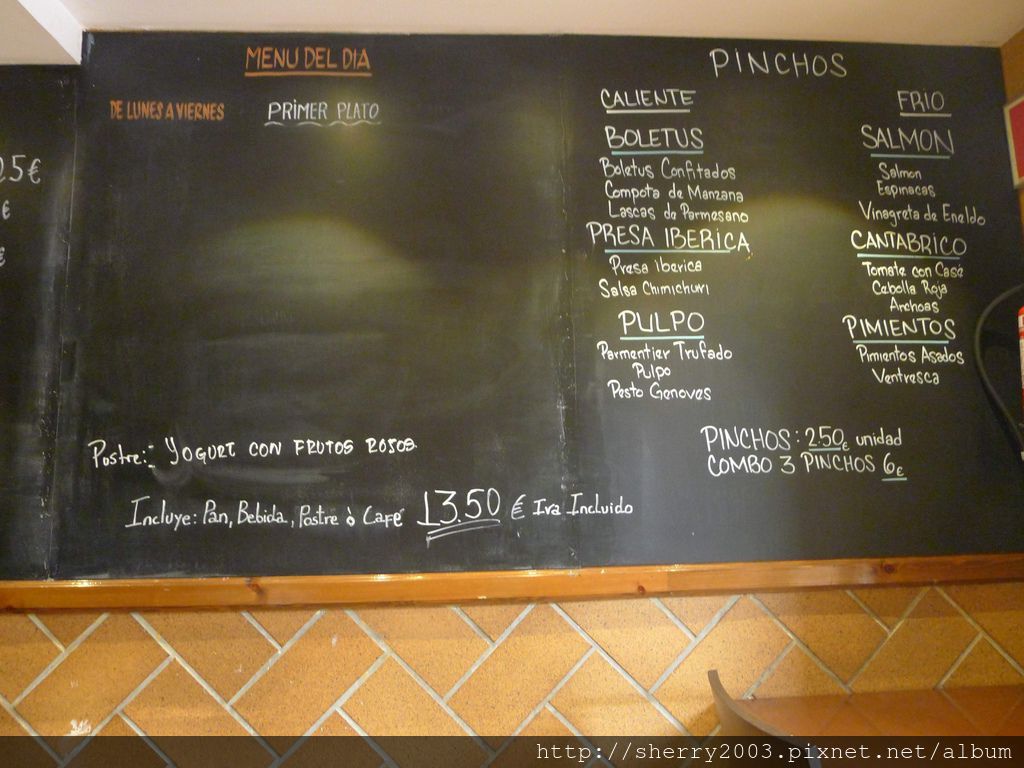 25€
€
€
MENU DEL DIA
DE LUNES A VIERNES PRIMER PLATO
Postre: YOGURT CON FRUTOS ROJOS
Incluye: Pan, Bebida, Postre ò Café 13.50 € Iva Incluido
PINCHOS
CALIENTE
BOLETUS
Boletus Confitados
Compota de Manzana
Lascas de Parmesano
PRESA IBERICA
Presa iberica
Salsa Chimichuri
PULPO
Parmentier Trufado
Pulpo
Pesto Genoves
FRIO
SALMON
Salmon
Espinacas
Vinagreta de Eneldo
CANTABRICO
Tomate con Casé
Cebolla Roja
Anchoas
PIMIENTOS
Pimientos Asados
Ventresca
PINCHOS: 2.50€ unidad
COMBO 3 PINCHOS 6€
http://sherry2003.pixnet.net/album